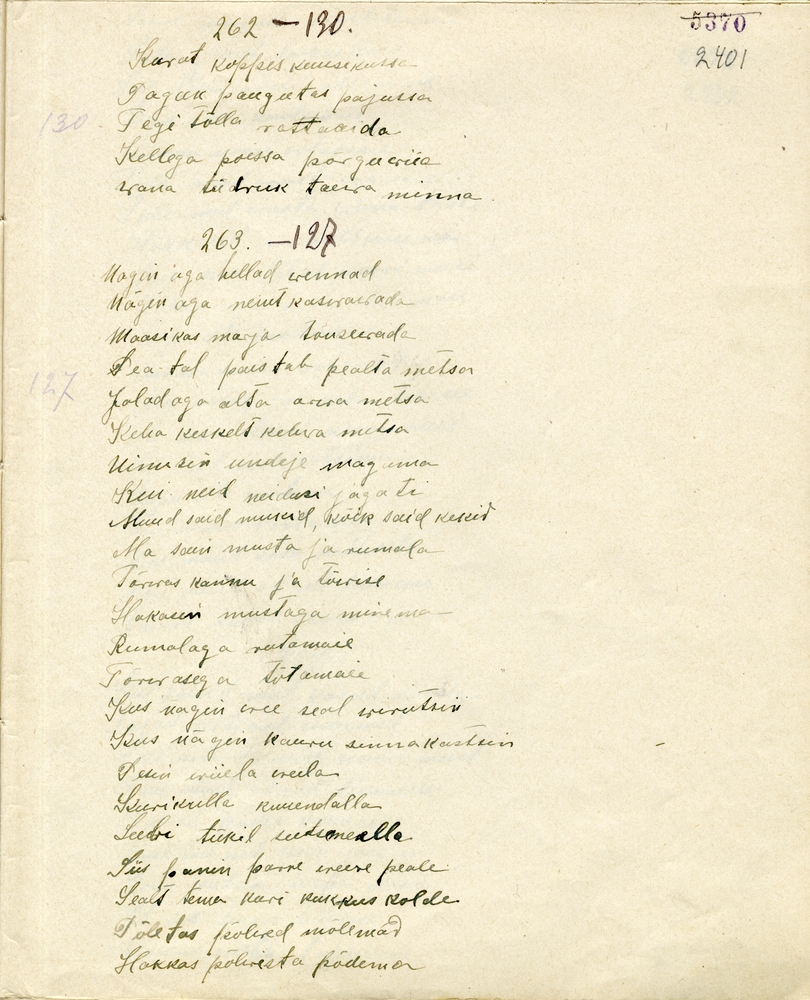 262 – 130.
5370
2401
Kurat koppis kuusikussa
Pagan paugutas pajussa
130
Tegi tõlla rattaaida
Kellega poissa põrgu wiia
wana tüdruk taewa minna
263. – 127
Nägin aga hellad wennad
Nägin aga neiut kaswawada
Maasikas marja tõusewada
Pea tal paistab pealta metsa
127
Jalad aga alta arwa metsa
Keha keskelt kehwa metsa
Uinusin undeje magama
Kui neid neidusi jagati
Muud said mukid, kõik said kekid
Ma sain musta ja rumala
Tõrwas kannu ja tõwise
Hakasin mustaga minema
Rumalaga rutamaie
Tõrwasega tõtamaie
Kus nägin wee seal wirutsin
Kus nägin kauru sinna kastsin
Pesin wiiela weela
Kurikulla kuuendalla
Seebi tükil seitsmealla
Siis panin parre weere peale
Sealt tema kari kukkus kolde
Põletas põlwed mõlemad
Hakkas põlwesta põdema